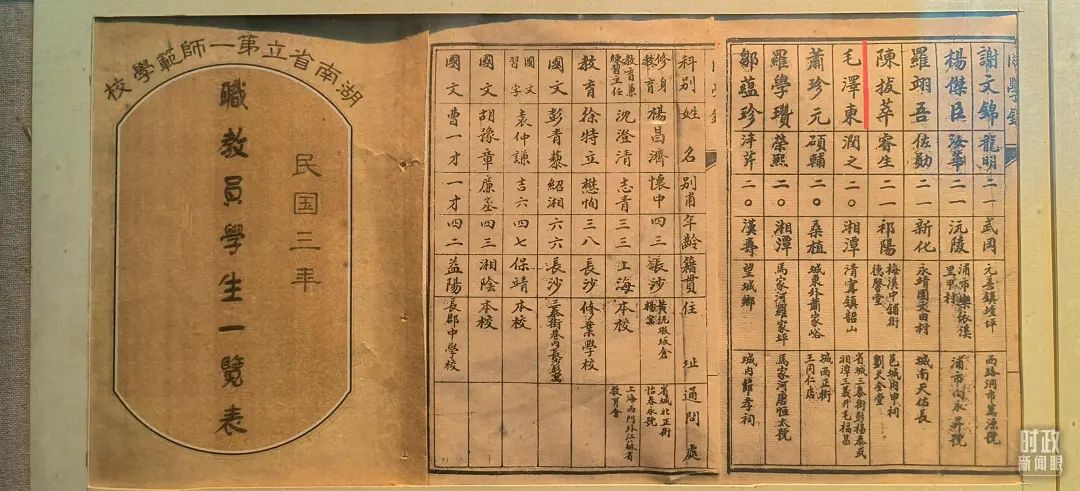 湖南省立第一師範學校
民囯三年
職教員學生一覽表
科別 姓名 別甫 年齡 籍貫 住址 通問處
修身 教育 楊昌濟 懷中 四三 長沙 坂倉楊家 省城北正街怡春永號
教育兼練習主任 沈澄清 志青 三三 上海 本校 上海西門外江蘇省教育會
教育 徐特立 懋恂 三八 長沙 修業學校
國文 彭青藜 紹湘 六六 長沙
國文 習字 袁仲謙 吉六 四七 保靖 本校
國文 胡豫章 廉丞 四三 湘陰 本校
國文 曹一才 一才 四二 益陽 長郡中學校
同學錄
謝文錦 龍明 二一 武岡 元善鎮 西路洞市萬源號
楊傑臣 汝華 二一 沅陵 浦市里甲村 浦市向永昇號
羅翊吾 佐勛 二一 新化 永靖團吳田村 城南天信長
陳拔萃 睿生 二一 祁陽 梅溪中舖街德馨堂 邑城内甲祠劉天金堂
毛澤東 潤之 二〇 湘潭 清寧鎮韶山 省城三泰街彭福泰或湘潭三義井毛福昌
蕭珍元 碩輔 二〇 桑植 城東外蕭家峪 城西正街王同仁店
羅學瓚 榮熙 二〇 湘潭 馬家河羅家坪 馬家河唐恒太號
鄒蘊珍 泮芹 二〇 漢壽 望城鄉 城内節孝祠
时政
新闻眼